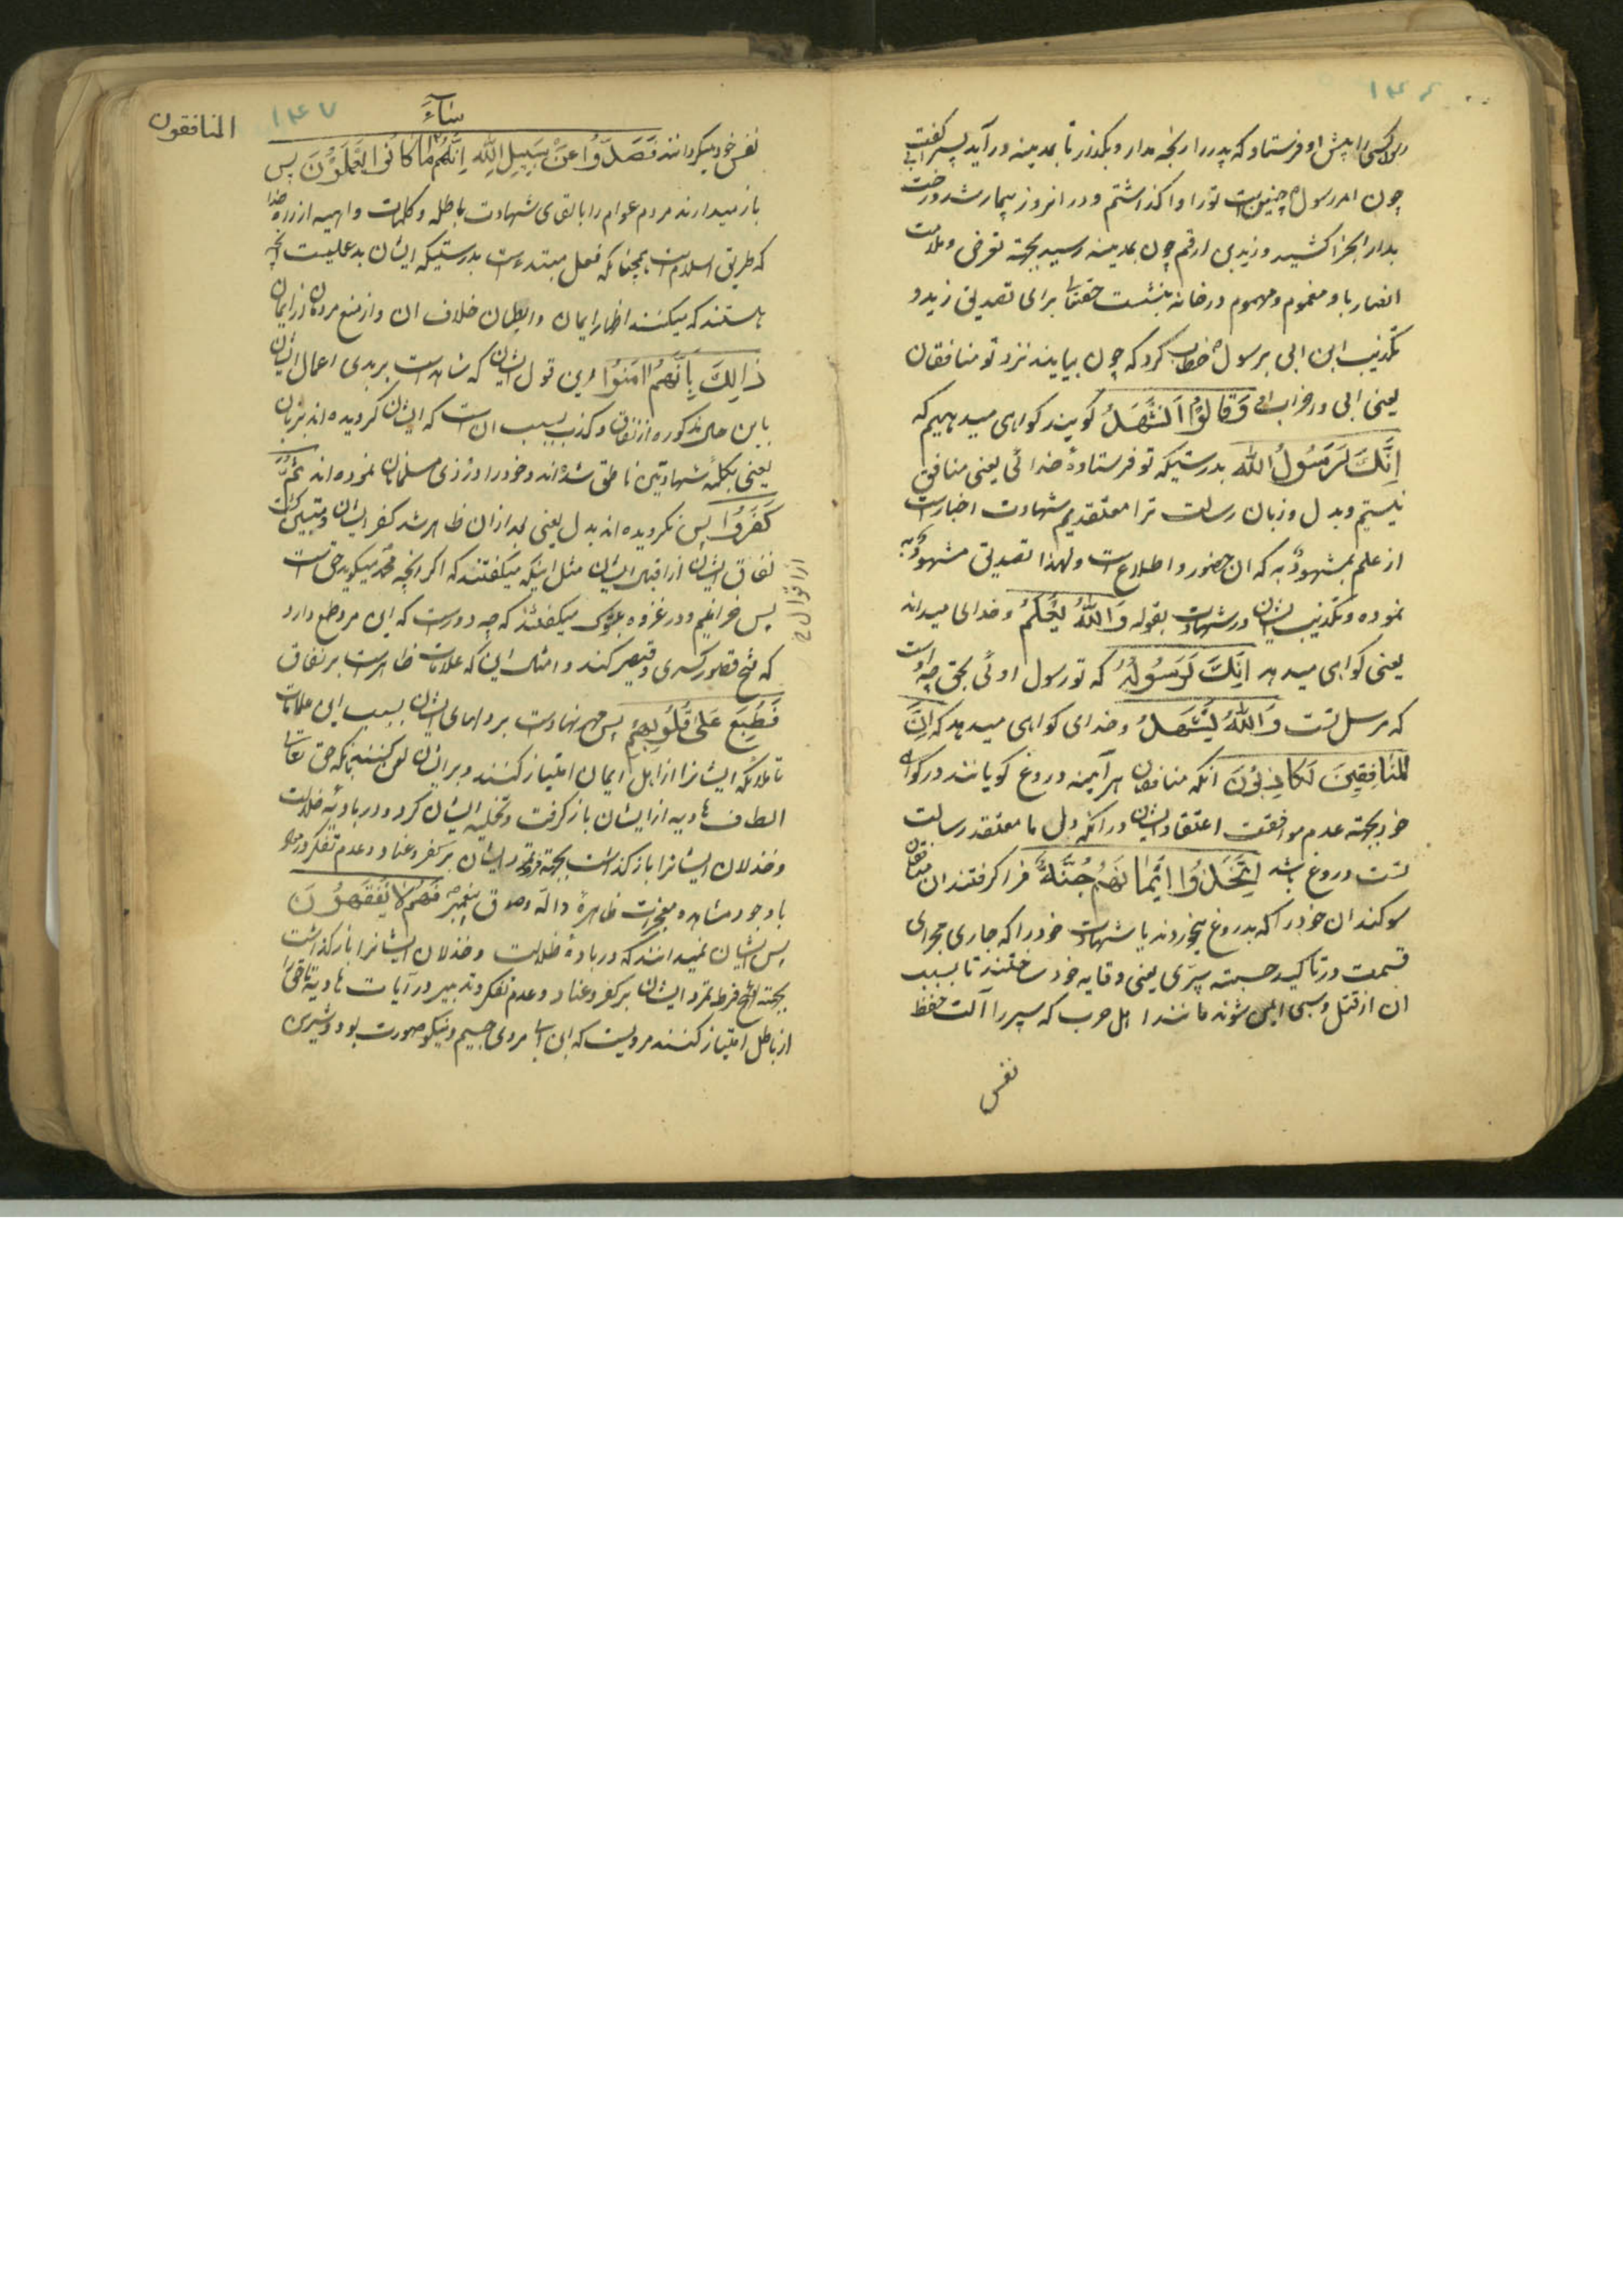 ۱۴۶
رسولا کسی را پیش او فرستاد که پدر را رنجه مدار و بگذار تا بمدینه درآید پسر گفت
چون امر رسول چنین است تو را واگذاشتم و در انروز بیمار شد و رخت
بدار الجزا کشید و زید بن ارقم چون بمدینه رسید بجهته تعرض و ملامت
انصار با و مغموم و مهموم در خانه بنشست حقتعالی برای تصدیق زید و
تکذیب ابن ابی برسول خطاب کرد که چون بیایند نزد تو منافقان
یعنی ابی و اضراب او وَقَالُوا نَشْهَدُ گویند گواهی میدهیم که
اِنَّكَ لَرَسُولُ اللّٰه بدرستیکه تو فرستادهٔ خدائی یعنی منافق
نیستیم و بدل و زبان رسالت ترا معتقدیم شهادت اخبار است
از علم بمشهودٌ به که ان حضور و اطلاع است و لهذا تصدیق مشهودٌ به
نموده و تکذیب ایشان در شهادت بقوله وَاللّٰهُ یَعْلَمُ و خدای میداند
یعنی گواهی میدهد اِنَّكَ لَرَسُولُهُ که تو رسول اوئی بحق چه او است
که مرسل تست وَاللّٰهُ یَشْهَدُ و خدای گواهی میدهد که اِنَّ
الْمُنَافِقِینَ لَكَاذِبُونَ انکه منافقان هر آینه دروغ گویانند در گواهی
خود بجهته عدم موافقت اعتقاد ایشان در انکه دل ما معتقد رسالت
تست دروغ باشد اِتَّخَذُوا اَیْمَانَهُمْ جُنَّةً فرا گرفتند ان منافقان
سوگندان خود را که بدروغ میخوردند یا شهادت خود را که جاری مجرای
قسمت در تاکید جنة سپری یعنی وقایه خود ساختند تا بسبب
ان از قتل و سبی ایمن شوند مانند اهل حرب که سپر را آلت حفظ
نفس
المنافقون
۱۴۷
سَاءَ
نفس خود میگردانند فَصَدُّوا عَنْ سَبِیلِ اللّٰهِ اِنَّهُمْ مَا كَانُوا یَعْمَلُونَ پس
باز میدارند مردم عوام را بالقای شهادت باطله و کلمات واهیه از راه خدا
که طریق اسلام است همچنانکه فعل مبتدء است بدرستیکه ایشان بد عملیست انچه
هستند که میکنند اظهار ایمان و ابطان خلاف ان و از منع مردمان از ایمان
ذٰلِكَ بِاَنَّهُمْ اٰمَنُوا این قول ایشان که شاهد است بر بدی اعمال ایشان
باین حال مذکوره از نفاق و کذب بسبب ان است که ایشان گرویده اند بزبان
یعنی بکلمهٔ شهادتین ناطق شده اند و خود را در زی مسلمانان نموده اند ثُمَّ
كَفَرُوا پس نگرویده اند بدل یعنی بعد از ان ظاهر شد کفر ایشان و مبین گشت
نفاق ایشان از اقوال ایشان مثل اینکه میگفتند که اکر انچه محمد میگوید حق است
از اقوال ح
پس خر ائیم و در غزوه تبوک میگفتند که چه دور است که این مرد طمع دارد
که فتح قصور کسری و قیصر کند و امثال این که علامات ظاهر است بر نفاق
فَطُبِعَ عَلٰی قُلُوبِهِمْ پس مهر نهاد است بر دلهای ایشان بسبب این علامات
تا ملائکه ایشانرا از اهل ایمان امتیاز کنند و بر ایشان لعن کنند یا انکه حق تعالی
الطاف هادیه از ایشان باز گرفت و تخلیه ایشان کرد و در بادیه ضلالت
و خذلان ایشانرا باز گذاشت بجهته فرط تمرد ایشان بر کفر و عناد و عدم تفکر در
با وجود مشاهده معجزات ظاهرهٔ دالّه بر صدق پیغمبر فَهُمْ لَا یَفْقَهُونَ
پس ایشان نمیدانند که در بادیهٔ ضلالت و خذلان ایشانرا باز گذاشت
بجهته فرط تمرد ایشان بر کفر و عناد و عدم تفکر و تدبیر در آیات هادیه تا حق را
از باطل امتیاز کنند مرویست که ابن ابی مردی جسیم و نیکو صورت بود و شیرین